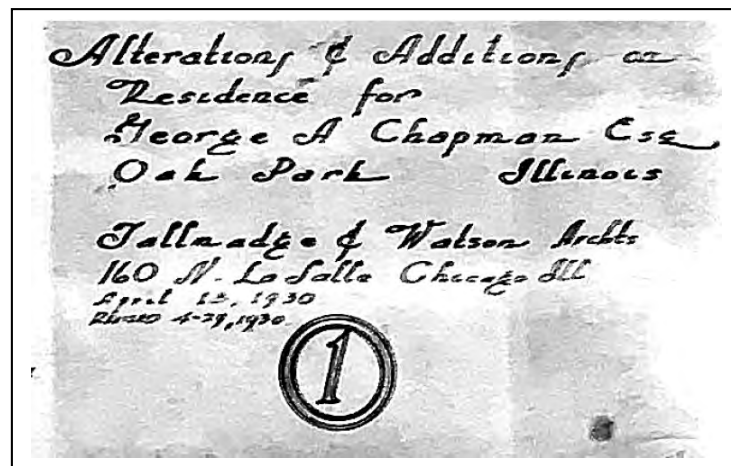 Alterations & Additions on
Residence for
George A Chapman Esq
Oak Park Illinois
Tallmadge & Watson Archts
160 N. La Salle Chicago Ill
April 15, 1930
4-29, 1930
1